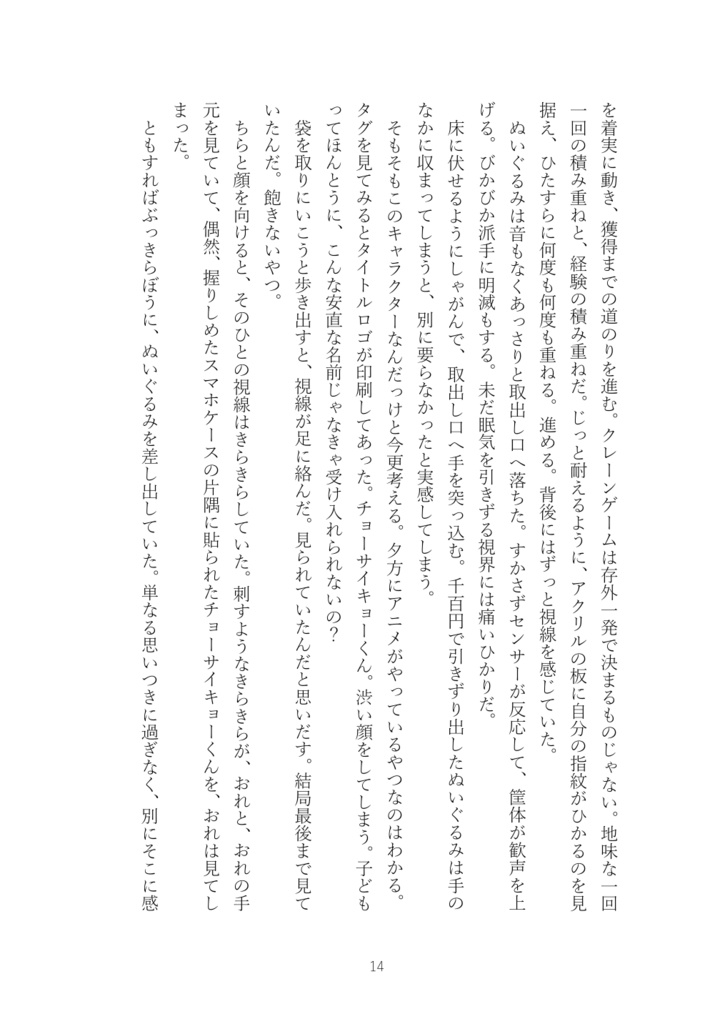 を着実に動き、獲得までの道のりを進む。クレーンゲームは存外一発で決まるものじゃない。地味な一回
一回の積み重ねと、経験の積み重ねだ。じっと耐えるように、アクリルの板に自分の指紋がひかるのを見
据え、ひたすらに何度も何度も重ねる。進める。背後にはずっと視線を感じていた。
ぬいぐるみは音もなくあっさりと取出し口へ落ちた。すかさずセンサーが反応して、筐体が歓声を上
げる。びかびか派手に明滅もする。未だ眠気を引きずる視界には痛いひかりだ。
床に伏せるようにしゃがんで、取出し口へ手を突っ込む。千百円で引きずり出したぬいぐるみは手の
なかに収まってしまうと、別に要らなかったと実感してしまう。
そもそもこのキャラクターなんだっけと今更考える。夕方にアニメがやっているやつなのはわかる。
タグを見てみるとタイトルロゴが印刷してあった。チョーサイキョーくん。渋い顔をしてしまう。子ども
ってほんとうに、こんな安直な名前じゃなきゃ受け入れられないの？
袋を取りにいこうと歩き出すと、視線が足に絡んだ。見られていたんだと思いだす。結局最後まで見て
いたんだ。飽きないやつ。
ちらと顔を向けると、そのひとの視線はきらきらしていた。刺すようなきらきらが、おれと、おれの手
元を見ていて、偶然、握りしめたスマホケースの片隅に貼られたチョーサイキョーくんを、おれは見てし
まった。
ともすればぶっきらぼうに、ぬいぐるみを差し出していた。単なる思いつきに過ぎなく、別にそこに感
14